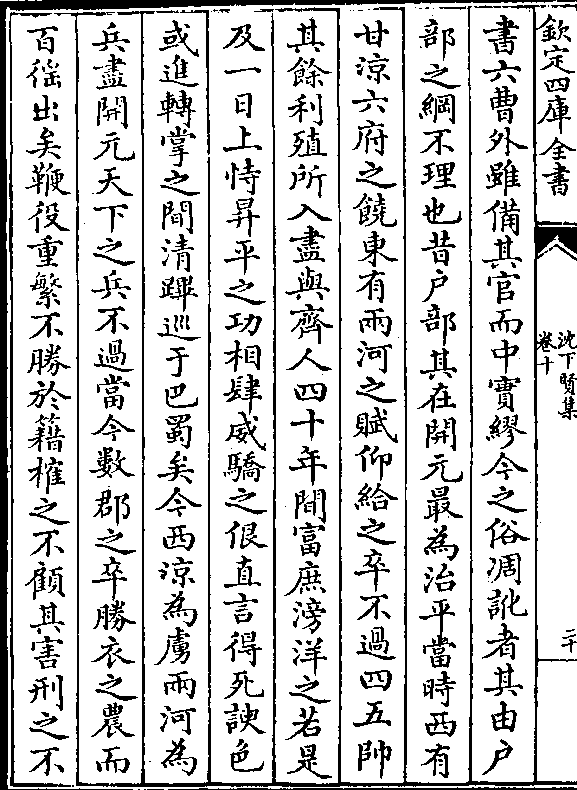 欽定四庫全書
沈下賢集
卷十
二十
書六曹外雖備其官而中實繆今之俗凋訛者其由户
部之綱不理也昔户部其在開元最為治平當時西有
甘涼六府之饒東有兩河之賦仰給之卒不過四五帥
其餘利殖所入盡與齊人四十年間富庶滂洋之若是
及一日上恃昇平之功相肆威驕之佷直言得死諛色
或進轉掌之間清蹕巡于巴蜀矣今西涼為虜兩河為
兵盡開元天下之兵不過當今數郡之卒勝衣之農而
百徭出矣鞭役重繁不勝於籍榷之不顧其害刑之不